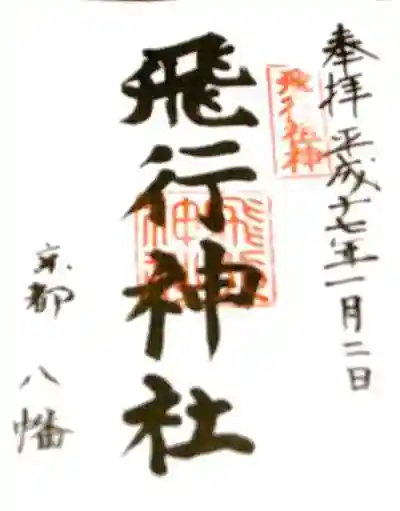 奉拝 平成十七年一月二日
飛行神社
飛行神社
飛行神社
京都 八幡